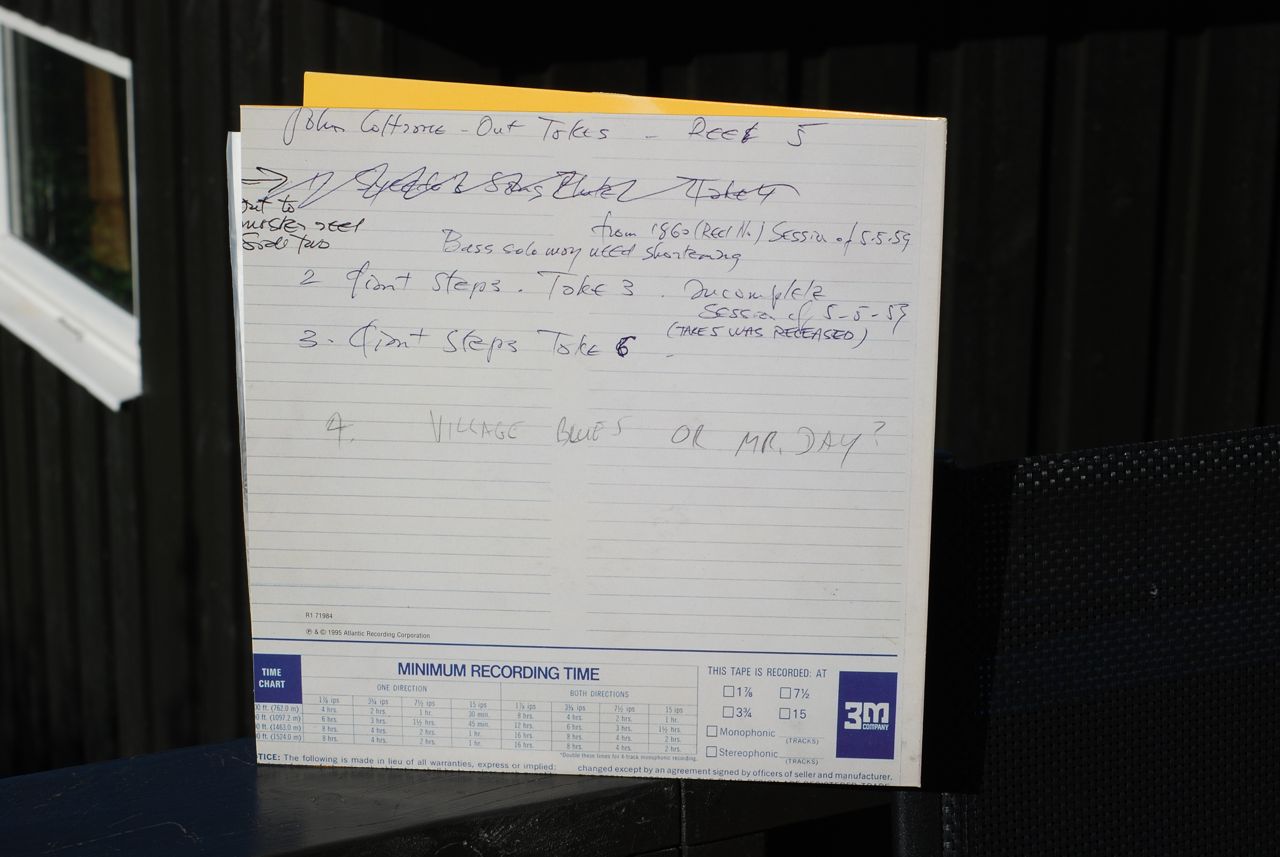 John Coltrane - Out Takes - Reel 5
→ 1) Take 4
put to
master reel
Side two
from 1860 (Reel No.) Session of 5.5.59
Bass solo may need shortening
2 Giant Steps. Take 3. Incomplete
Session of 5-5-59
(TAKE 5 WAS RELEASED)
3. Giant Steps Take 6
4. VILLAGE BLUES OR MR. DAY?
R1 71984
℗ & © 1995 Atlantic Recording Corporation
TIME CHART
MINIMUM RECORDING TIME
ONE DIRECTION BOTH DIRECTIONS
1⅞ ips 3¾ ips 7½ ips 15 ips 1⅞ ips 3¾ ips 7½ ips 15 ips
0 ft. (762.0 m) 4 hrs. 2 hrs. 1 hr. 30 min. 8 hrs. 4 hrs. 2 hrs. 1 hr.
0 ft. (1097.2 m) 6 hrs. 3 hrs. 1½ hrs. 45 min. 12 hrs. 6 hrs. 3 hrs. 1½ hrs.
0 ft. (1463.0 m) 8 hrs. 4 hrs. 2 hrs. 1 hr. 16 hrs. 8 hrs. 4 hrs. 2 hrs.
0 ft. (1524.0 m) 8 hrs. 4 hrs. 2 hrs. 1 hr. 16 hrs. 8 hrs. 4 hrs. 2 hrs.
*Double these times for 4-track monophonic recording.
THIS TAPE IS RECORDED: AT
☐ 1⅞ ☐ 7½
☐ 3¾ ☐ 15
☐ Monophonic
(TRACKS)
☐ Stereophonic
(TRACKS)
3M
COMPANY
OTICE: The following is made in lieu of all warranties, express or implied: changed except by an agreement signed by officers of seller and manufacturer.